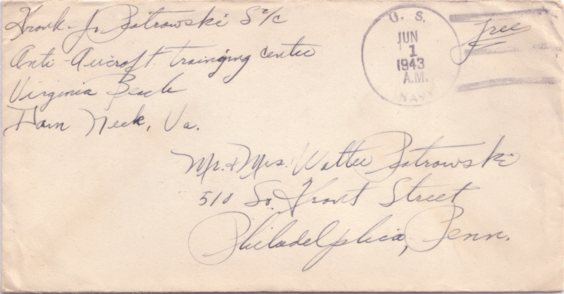 Frank J. Piotrowski S2/c
Anti-Aircraft trainging center
Virginia Beach
Dam Neck, Va.
U. S.
JUN
1
1943
A.M.
NAVY
Free
Mr. & Mrs. Walter Piotrowski
510 So. Front Street
Philadelphia, Penn.